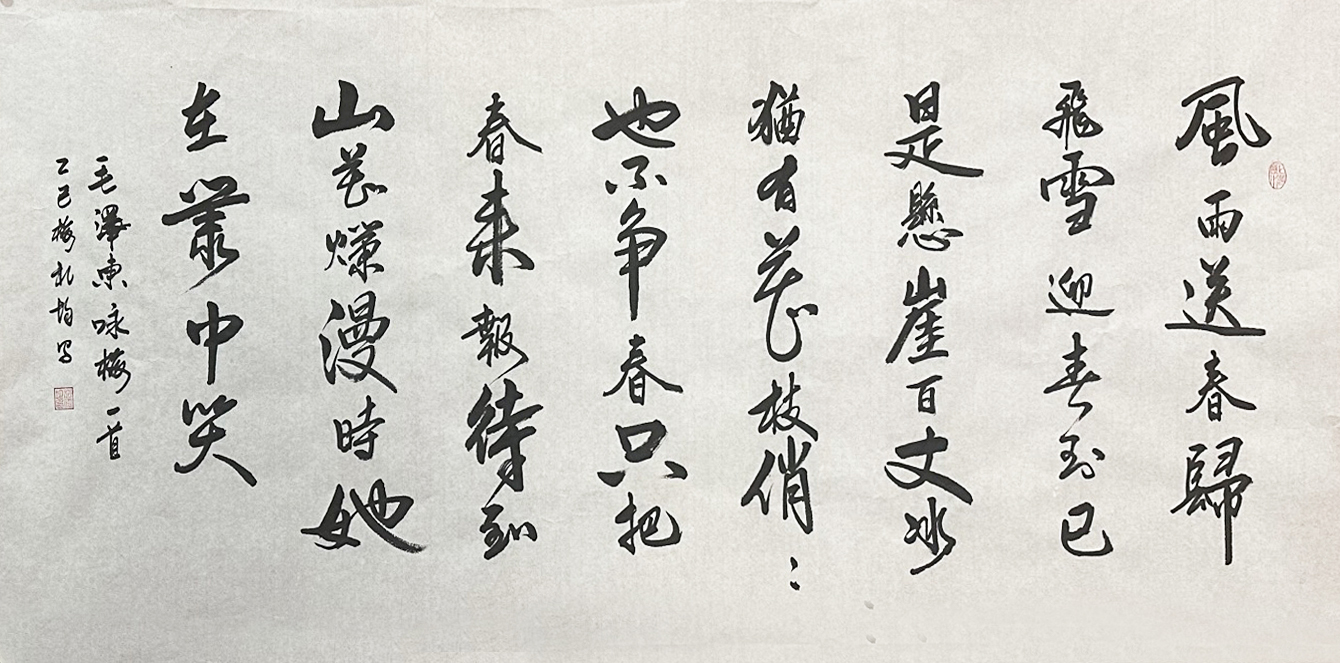 風雨送春歸
飛雪迎春到已
是懸崖百丈冰
猶有花枝俏〻
也不争春只把
春来報待到
山花爛漫時她
在叢中笑
毛澤東咏梅一首
乙巳梅礼均写